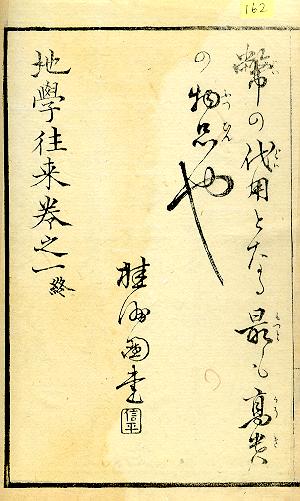 幣の代用となる最も高貴
の物品也
桂洲画書
信平
地學往来巻之一終
162